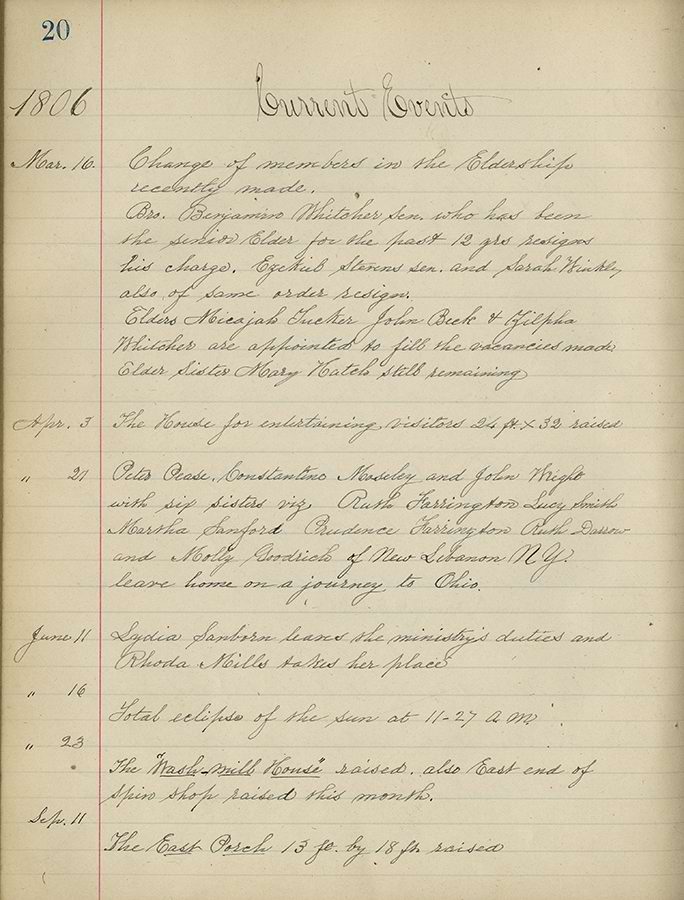 20
1806 Current Events
Mar. 16. Change of members in the Eldership
recently made.
Bro. Benjamin Whitcher sen. who has been
the senior Elder for the past 12 yrs resigns
his charge. Ezekiel Stevens sen. and Sarah Winkley
also of same order resign.
Elders Micajah Tucker John Beck & Zilpha
Whitcher are appointed to fill the vacancies made
Elder Sister Mary Hatch still remaining
Apr. 3 The House for entertaining visitors 24 ft. x 32 raised
" 27 Peter Pease, Constantine Moseley and John Wright
with six sisters viz Ruth Farrington Lucy Smith
Martha Sanford Prudence Farrington Ruth Darrow
and Molly Goodrich of New Lebanon N Y.
leave home on a journey to Ohio.
June 11 Lydia Sanborn leaves the ministry's duties and
Rhoda Mills takes her place
" 16
Total eclipse of the sun at 11-27 A.M.
" 23
The "Wash-mill House" raised. also East end of
spin shop raised this month.
Sep. 11
The East Porch 13 ft. by 18 ft. raised